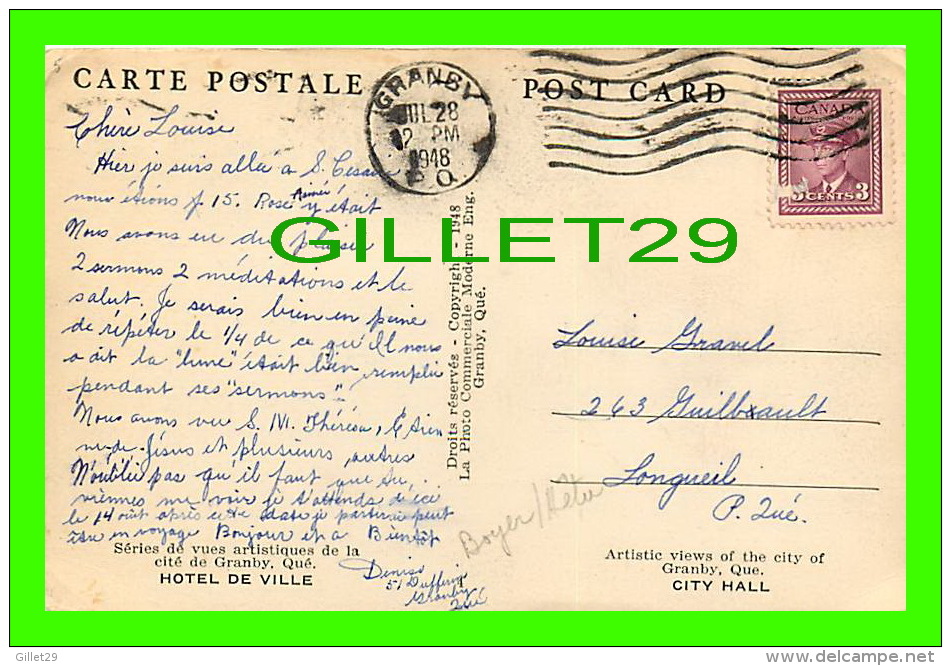 CARTE POSTALE
POST CARD
GRANBY
JUL 28
2 PM
1948
P.Q.
CANADA
3 CENTS 3
Chère Louise
Hier je suis allée à S. Césaire
nous étions 15. Rose Aimée y était
Nous avons eu du plaisir
2 sermons 2 méditations et le
salut. Je serais bien en peine
de répéter le 1/4 de ce qu'Il nous
a dit la "lune" était bien remplie
pendant ses "sermons"...
Nous avons vu S. M. Thérèsa, Etien
ne-de-Jésus et plusieurs autres
N'oublie pas qu'il faut que tu
viennes me voir je t'attends d'ici
le 14 août après cette date je partirai peut
être en voyage Bonjour et à Bientôt
Denise
51 Dufferin
Granby
Qué
GILLET29
Droits réservés - Copyright - 1948
La Photo Commerciale Moderne Eng.
Granby, Qué.
Louise Gravel
263 Guilbault
Longueil
P. Qué.
Boyer/
Séries de vues artistiques de la
cité de Granby, Qué.
HOTEL DE VILLE
Artistic views of the city of
Granby, Que.
CITY HALL
Gillet29
http://www.delcampe.net